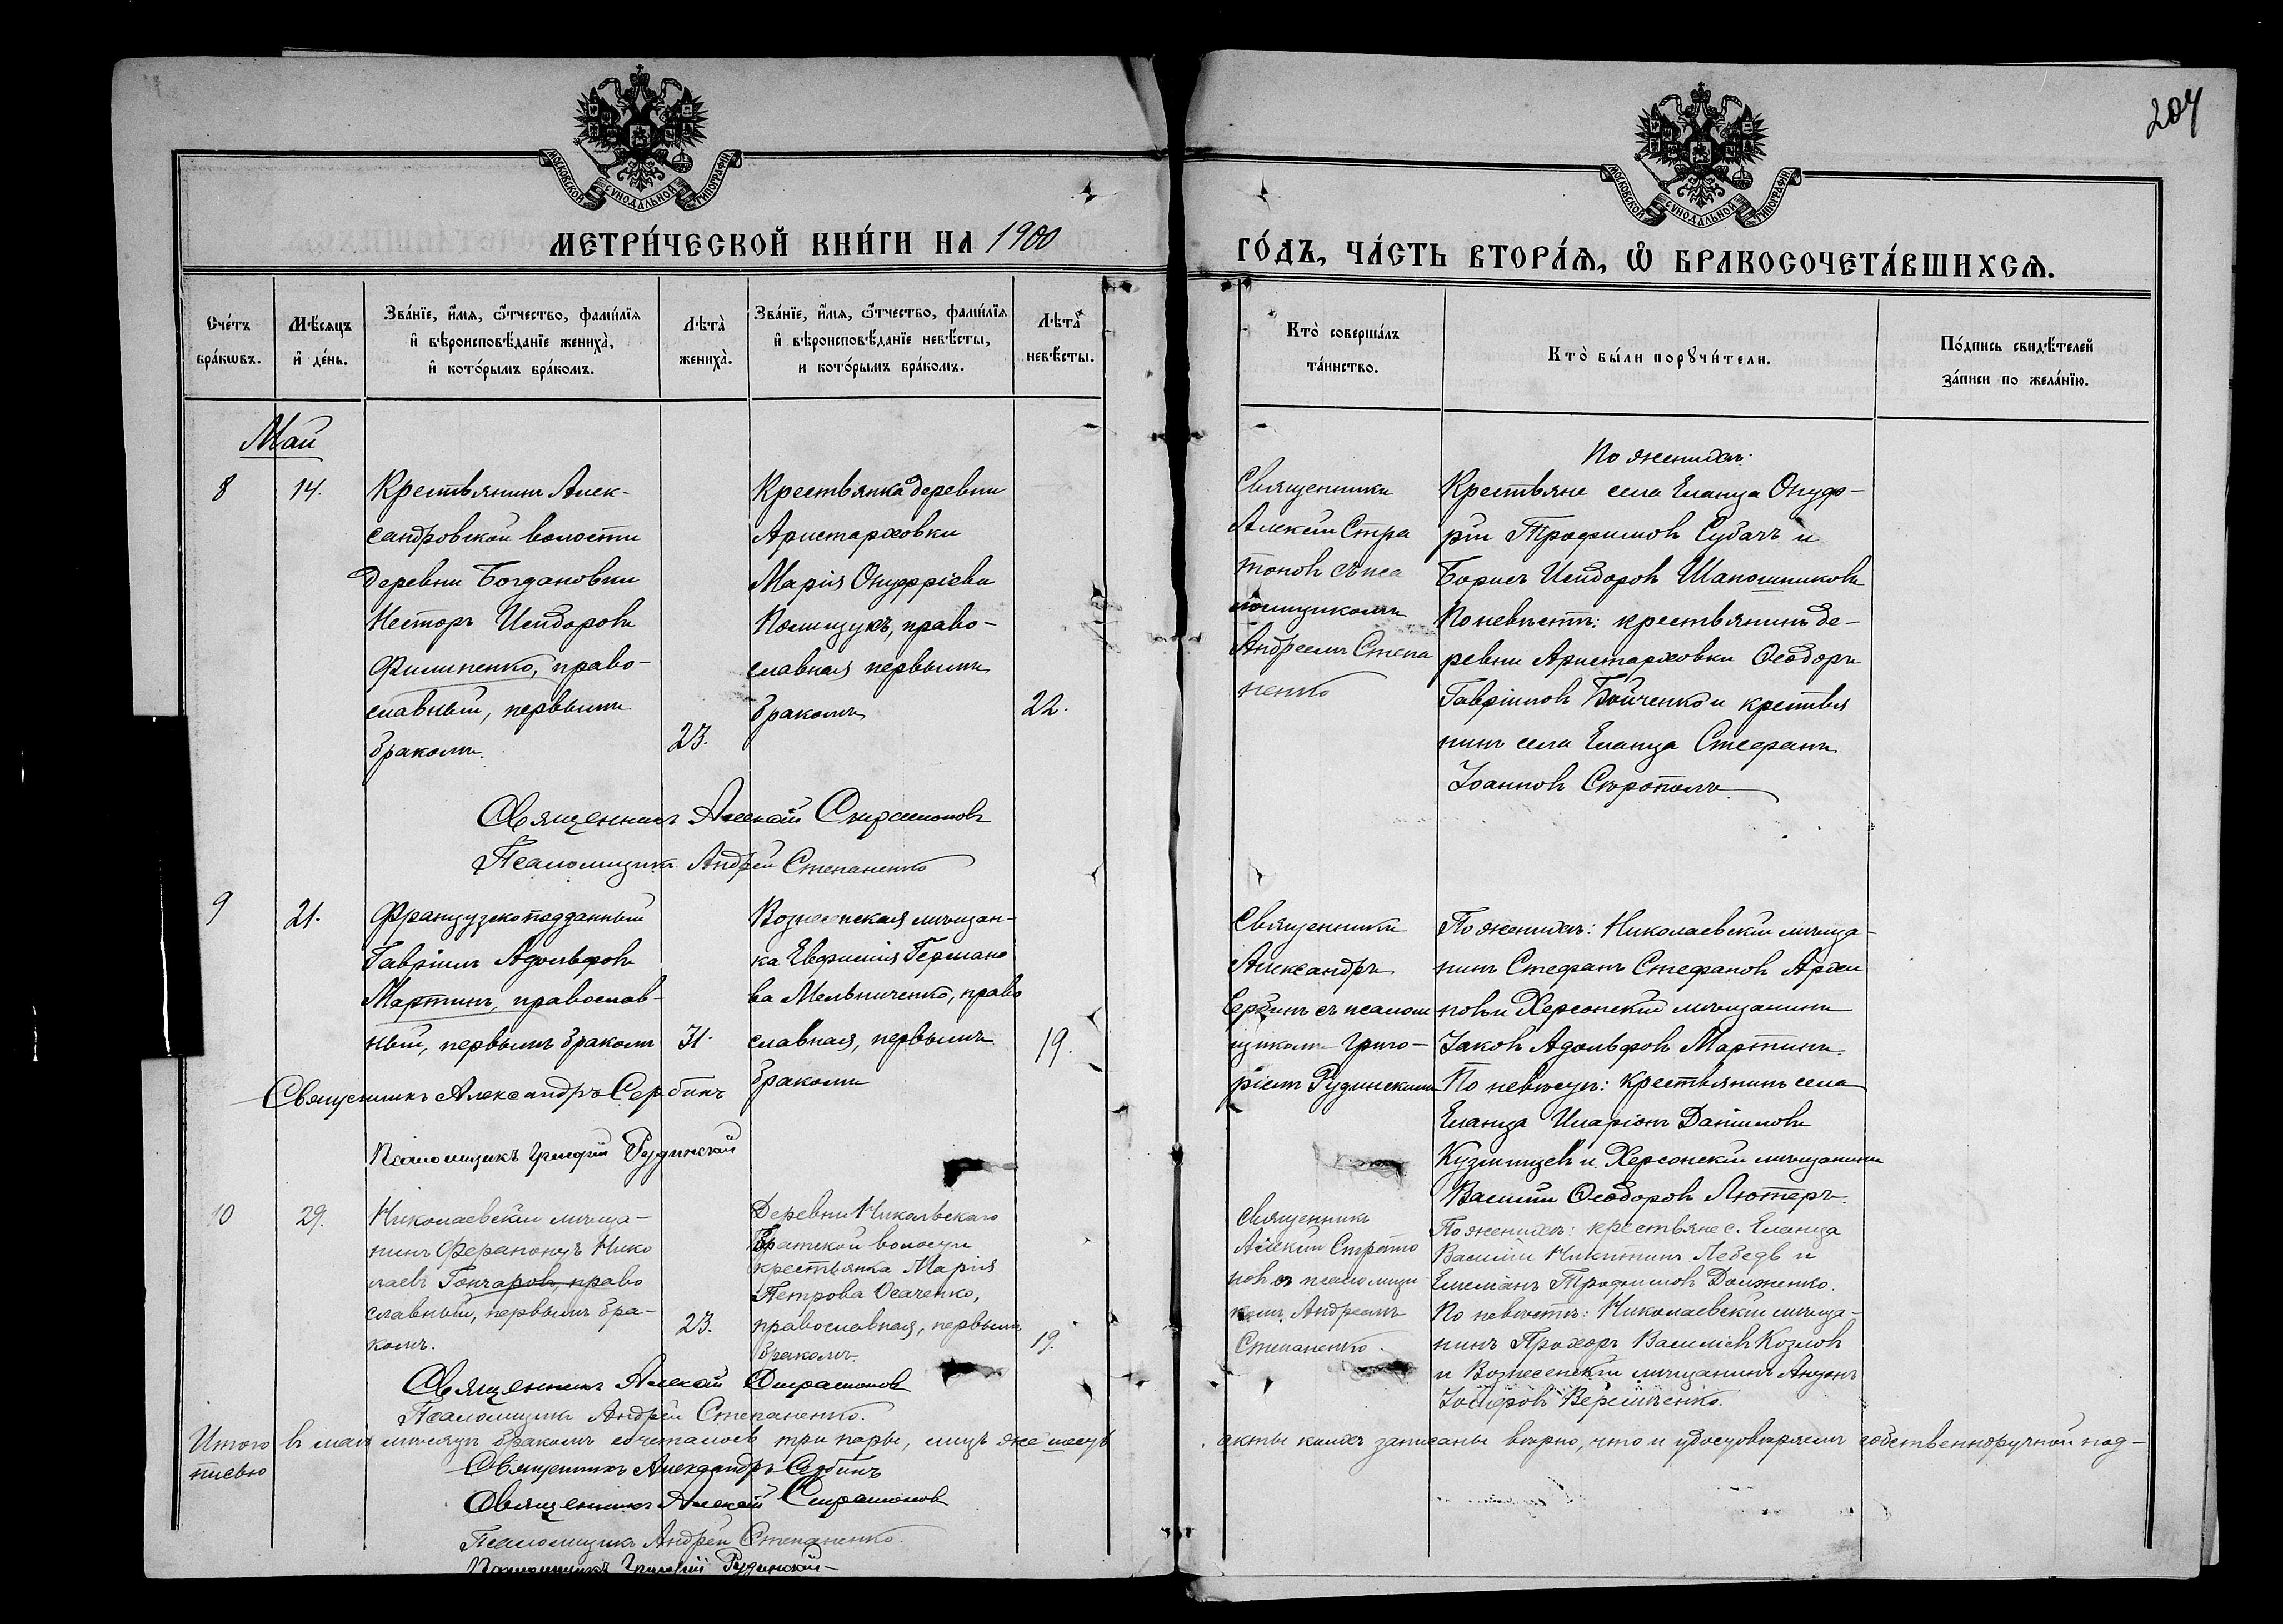 204
МОСКОВСКОЙ СУНОДАЛЬНОЙ ТИПОГРАФІИ
МОСКОВСКОЙ СУНОДАЛЬНОЙ ТИПОГРАФІИ
МЕТРИ́ЧЕСКОЙ КНИ́ГИ НА 1900
ГО́ДЪ, ЧА́СТЬ ВТОРА́Ѧ, Ѡ҆ БРАКОСОЧЕТА́ВШИХСѦ.
Сче́тъ
бра́кѡвъ.
Мѣ́сяцъ
и҆ де́нь.
Зва́нїе, и҆́мѧ, ѻ҆́тчество, фами́лїѧ
и҆ вѣроисповѣ́данїе жениха̀,
и҆ кото́рымъ бра́комъ.
Лѣта̀
жениха̀.
Зва́нїе, и҆́мѧ, ѻ҆́тчество, фами́лїѧ
и҆ вѣроисповѣ́данїе невѣ́сты,
и кото́рымъ бра́комъ.
Лѣта̀
невѣ́сты.
Кто̀ соверша́лъ
та́инство.
Кто̀ бы́ли порꙋчи́тели.
По́дпись свидѣ́телей
за́писи по жела́нїю.
Май
8
14.
Крестьянинъ Алек-
сандровской волости
деревни Богдановки
Несторъ Исидоровъ
Филипенко, право-
славный, первымъ
бракомъ.
23.
Крестьянка деревни
Аристарховки
Марія Онуфріева
Полищукъ, право-
славная первымъ
бракомъ
22.
Священникъ
Алексѣй Стра
тоновъ съ пса
ломщикомъ
Андреемъ Степа
ненко
По женихѣ:
Крестьяне села Еланца Онуф-
рій Трофимовъ Субачъ и
Борисъ Исидоровъ Шапошниковъ
По невѣстѣ: крестьянинъ де-
ревни Аристарховки Ѳеодоръ
Гавріиловъ Бойченко и крестья
нинъ села Еланца Стефанъ
Іоанновъ
Священникъ Алексѣй Стратоновъ
Псаломщикъ Андрей Степаненко
9
21.
Французскоподданный
Гавріилъ Адольфовъ
Мартинъ, православ-
ный, первымъ бракомъ
31.
Вознесенская мѣщан-
ка Евфимія Германо
ва Мельниченко, право
славная, первымъ
бракомъ
19.
Священникъ
Александръ
Сербинъ съ псалом
щикомъ Григо-
ріемъ Рудинскимъ
По женихѣ: Николаевскій мѣща-
нинъ Стефанъ Стефановъ Архи
повъ и Херсонскій мѣщанинъ
Іаковъ Адольфовъ Мартинъ.
По невѣстѣ: Крестьянинъ села
Еланца Иларіонъ Даниловъ
Кузминцевъ и Херсонскій мѣщанинъ
Василій Ѳеодоровъ Лютеръ.
Священникъ Александръ Сербинъ
Псаломщикъ Григорій Рудинскій
10
29.
Николаевскій мѣща-
нинъ Ферапонтъ Нико
лаевъ Гончаровъ, право
славный, первымъ бра-
комъ.
23.
Деревни Никольскаго
Братской волости
крестьянка Марія
Петрова Осаченко,
православная, первымъ
бракомъ.
19.
Священникъ
Алексѣй Страто
новъ съ псаломщи
комъ Андреемъ
Степаненко.
По женихѣ: крестьяне с. Еланца
Василій Никитинъ Лебедь и
Емеліанъ Трофимовъ Долженко.
По невѣстѣ: Николаевскій мѣща-
нинъ Прохоръ Василіевъ Козловъ
и Вознесенскій мѣщанинъ Антонъ
Іосифовъ
Священникъ Алексѣй Стратоновъ
Псаломщикъ Андрей Степаненко.
Итого въ маѣ мѣсяцѣ бракомъ сочеталось три пары, лицъ же шесть
акты коихъ записаны вѣрно, что и удостовѣряемъ собственноручной под-
писью
Священникъ Александръ Сербинъ
Священникъ Алексѣй Стратоновъ
Псаломщикъ Андрей Степаненко.
Псаломщикъ Григорій Рудинскій